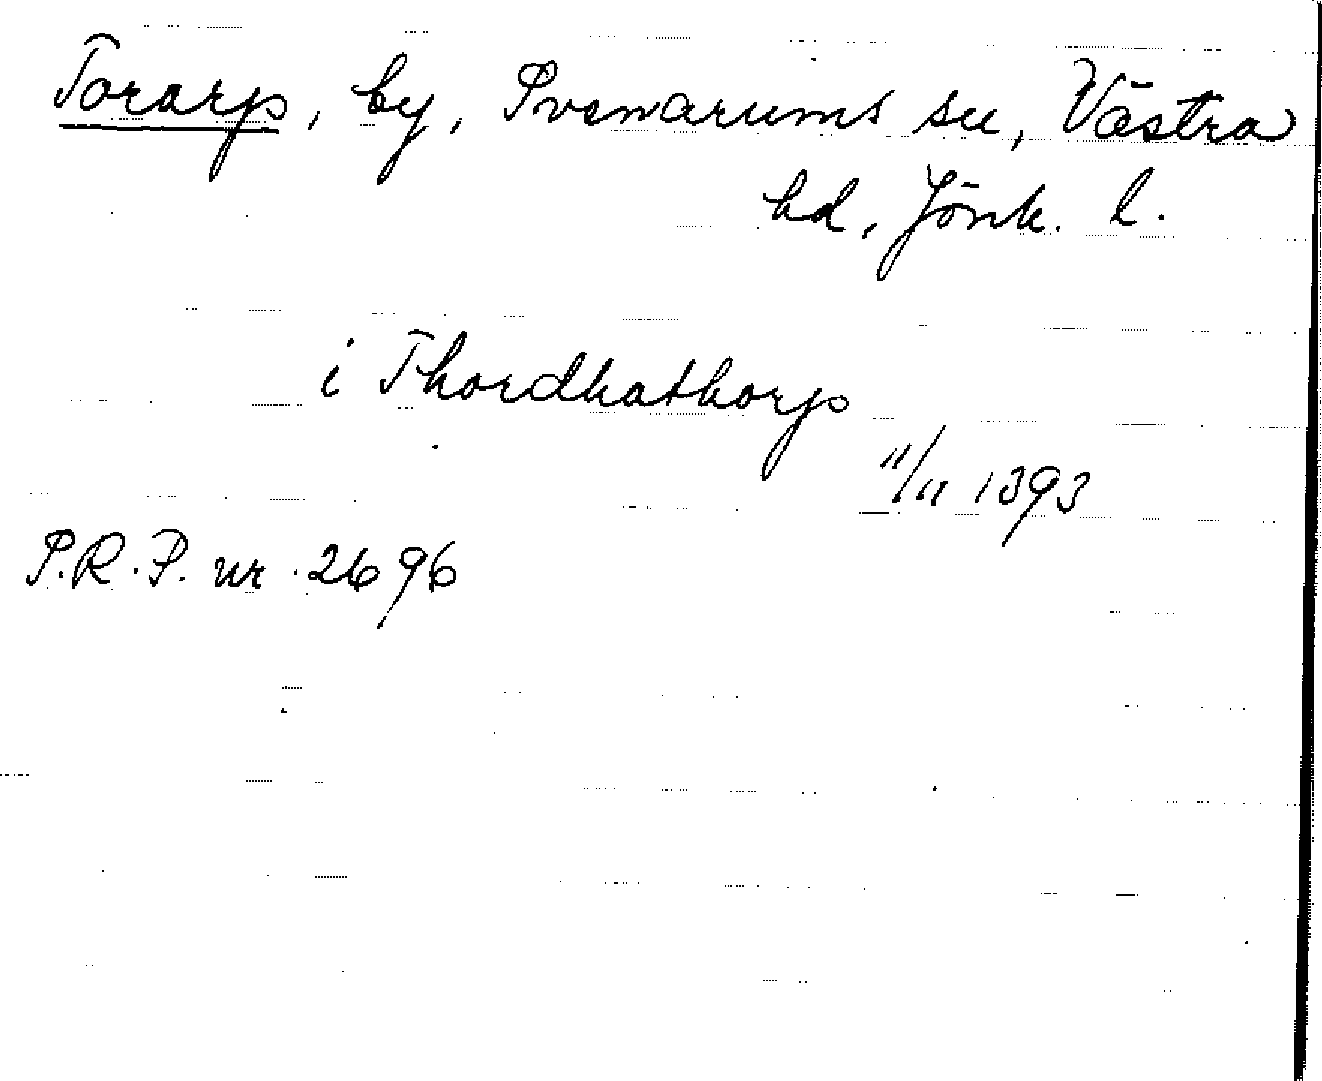 Torarp, by, Svenarums sn, Västra
hd, Jönk. l.
i Thordhathorp
11/11 1393
S.R.P. nr. 2696